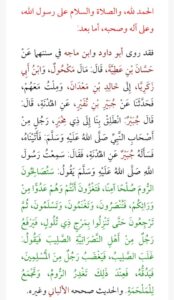 الحمد لله، والصلاة والسلام على رسول الله،
وعلى آله وصحبه، أما بعد:
فقد روى أبو داود وابن ماجه في سننها عَنْ
حَسَّانَ بْنِ عَطِيَّةَ، قَالَ: مَالَ مَكْحُولٌ، وَابْنُ أَبِي
زَكَرِيَّا، إِلَى خَالِدِ بْنِ مَعْدَانَ، وَمِلْتُ مَعَهُمْ،
فَحَدَّثَنَا عَنْ جُبَيْرِ بْنِ نُفَيْرٍ، عَنِ الهُدْنَةِ، قَالَ:
قَالَ جُبَيْرٌ: انْطَلِقْ بِنَا إِلَى ذِي مِخْبَرٍ، رَجُلٍ مِنْ
أَصْحَابِ النَّبِيِّ صَلَّى اللهُ عَلَيْهِ وَسَلَّمَ، فَأَتَيْنَاهُ،
فَسَأَلَهُ جُبَيْرٌ عَنِ الهُدْنَةِ، فَقَالَ: سَمِعْتُ رَسُولَ
اللَّهِ صَلَّى اللهُ عَلَيْهِ وَسَلَّمَ يَقُولُ: سَتُصَالِحُونَ
الرُّومَ صُلْحًا آمِنًا، فَتَغْزُونَ أَنْتُمْ وَهُمْ عَدُوًّا مِنْ
وَرَائِكُمْ، فَتُنْصَرُونَ، وَتَغْنَمُونَ، وَتَسْلَمُونَ، ثُمَّ
تَرْجِعُونَ حَتَّى تَنْزِلُوا بِمَرْجٍ ذِي تُلُولٍ، فَيَرْفَعُ
رَجُلٌ مِنْ أَهْلِ النَّصْرَانِيَّةِ الصَّلِيبَ فَيَقُولُ:
غَلَبَ الصَّلِيبُ، فَيَغْضَبُ رَجُلٌ مِنَ الْمُسْلِمِينَ،
فَيَدُقُّهُ، فَعِنْدَ ذَلِكَ تَغْدِرُ الرُّومُ، وَتَجْمَعُ
لِلْمَلْحَمَةِ. والحديث صححه الألباني وغيره.